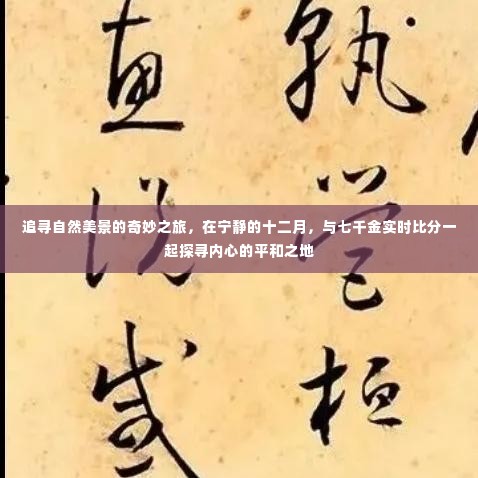 孰營桓
惠說感
追寻自然美景的奇妙之旅，在宁静的十二月，与七千金实时比分一
起探寻内心的平和之地